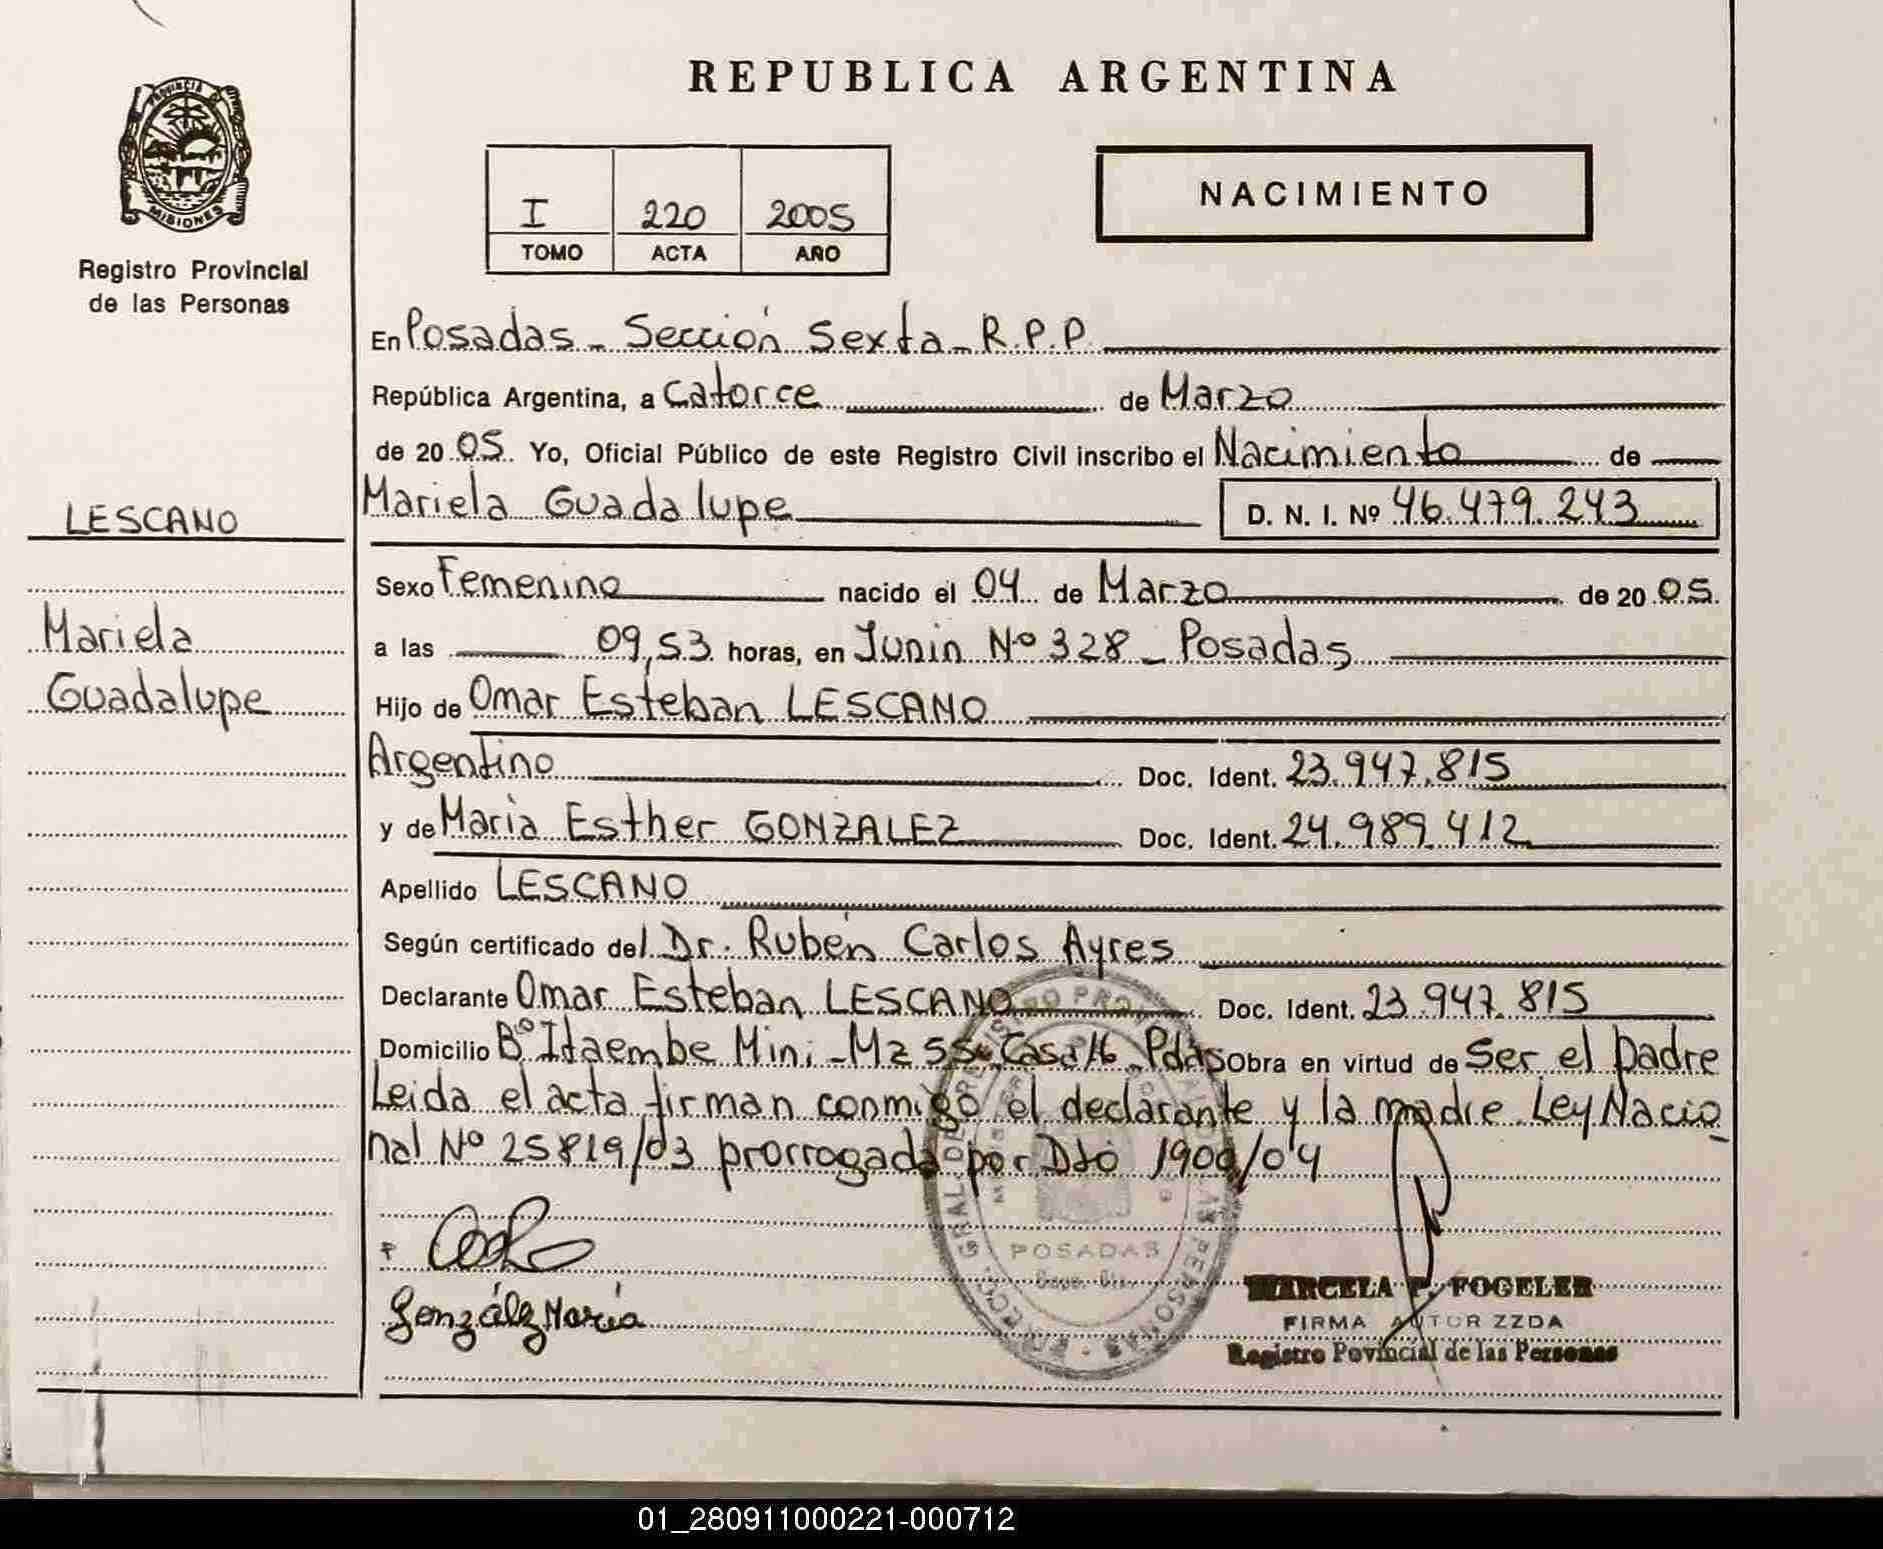 REPUBLICA ARGENTINA
PROVINCIA DE
MISIONES
Registro Provincial
de las Personas
I 220 2005
TOMO ACTA AÑO
NACIMIENTO
En Posadas - Sección Sexta - R.P.P.
República Argentina, a Catorce de Marzo
de 20 05. Yo, Oficial Público de este Registro Civil inscribo el Nacimiento de
LESCANO
Mariela Guadalupe D. N. I. Nº 46.479.243
Sexo Femenino nacido el 04 de Marzo de 20 05.
Mariela
a las 09,53 horas, en Junin Nº 328 - Posadas
Guadalupe
Hijo de Omar Esteban LESCANO
Argentino Doc. Ident. 23.947.815
y de María Esther GONZALEZ Doc. Ident. 24.989.412
Apellido LESCANO
Según certificado del Dr. Rubén Carlos Ayres
Declarante Omar Esteban LESCANO Doc. Ident. 23.947.815
Domicilio Bº Itaembe Mini - Mz 55 - Casa 16 - Pdas Obra en virtud de Ser el padre
Leida el acta firman conmigo el declarante y la madre Ley Nacio
nal Nº 25819/03 prorrogada por Dto 1900/04
POSADAS
González María
MARCELA P. FOGELER
FIRMA AUTORIZZDA
Registro Povincial de las Personas
01_280911000221-000712